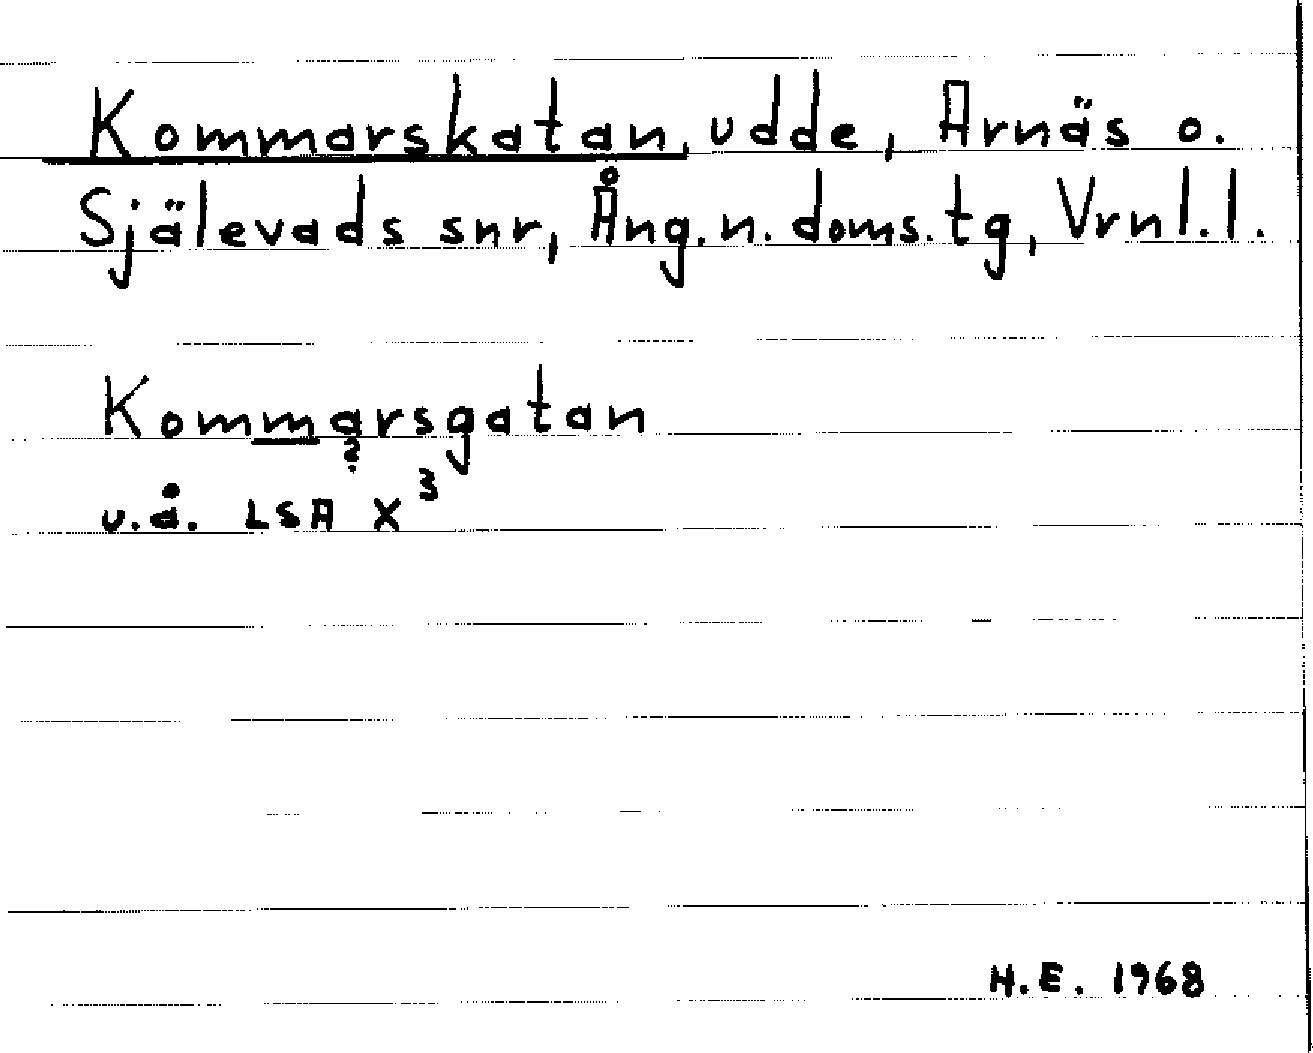 Kommarskatan, udde, Arnäs o.
Själevads snr, Ång. n. doms. tg, Vrnl. l.
Kommarsgatan
?
u.å. LSA X³
H.E. 1968